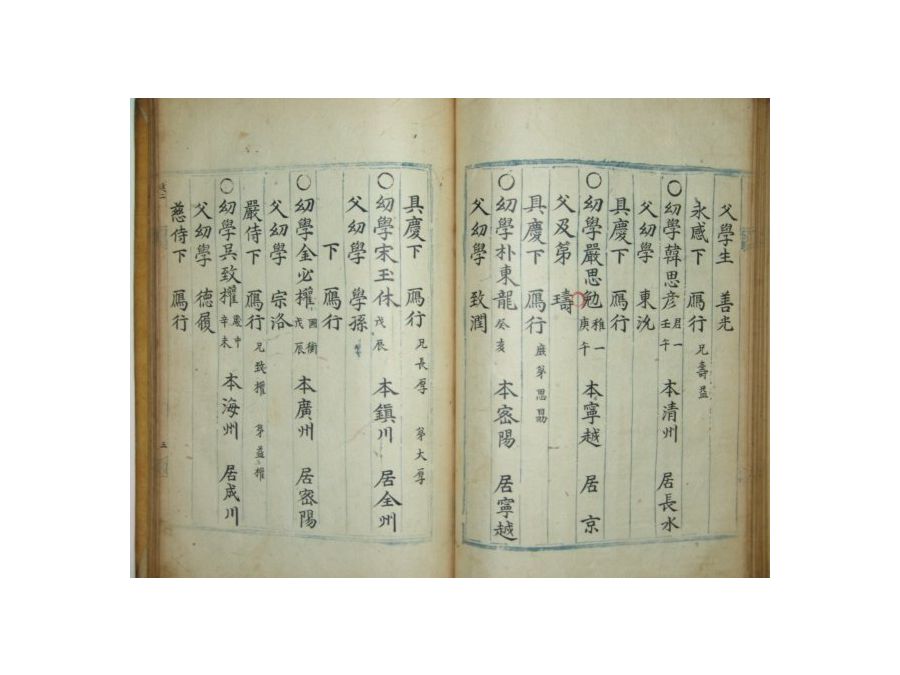 父學生 善光
永感下 鴈行 兄壽益
○幼學韓思彦 君一 壬午 本清州 居長水
父幼學 東沇
具慶下 鴈行
○幼學嚴思勉 稚一 庚午 本寧越 居京
父及第 璹
具慶下 鴈行 庶弟思勗
○幼學朴東龍 癸亥 本密陽 居寧越
父幼學 致潤
具慶下 鴈行 兄長厚 弟大厚
○幼學宋玉休 戊辰 本鎮川 居全州
父幼學 學孫
下 鴈行
○幼學金必權 國衡 戊辰 本廣州 居密陽
父幼學 宗洛
嚴侍下 鴈行 兄致權 弟益權
○幼學吳致權 慶中 辛未 本海州 居成川
父幼學 德履
慈侍下 鴈行
三